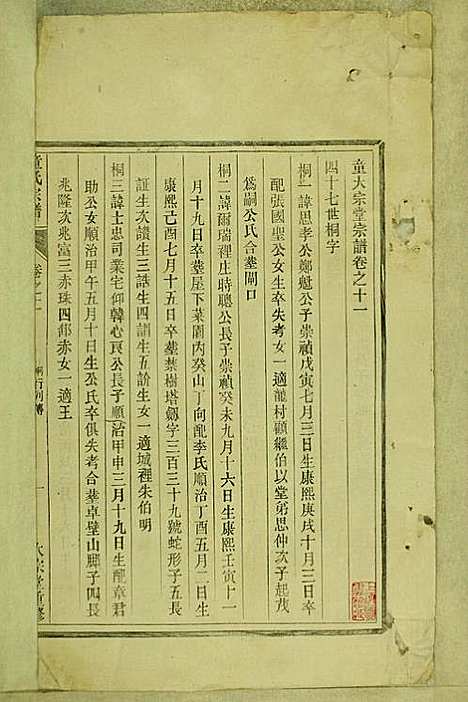 童大宗堂宗譜卷之十一
四十七世桐字
桐一諱思孝公鄭魁公子崇禎戊寅七月三日生康熙庚戌十月三日卒
配張國聖公女生卒失考女一適龍村顧繼伯以堂弟思仲次子起茂
為嗣公氏合塟閘口
桐二諱爾瑞裡庄時聰公長子崇禎癸未九月十六日生康熙壬寅十一
月十九日卒塟屋下菜園內癸山丁向配李氏順治丁酉五月二日生
康熙己酉七月十五日卒塟禁樹塔劔字三百三十九號蛇形子五長
証生次讀生三誥生四諳生五訡生女一適城裡朱伯明
桐三諱士忠司業宅仰韓心良公長子順治甲申三月十九日生配章君
助公女順治甲午五月十日生公氏卒俱失考合塟卓壁山腳子四長
兆隆次兆富三赤珠四郝赤女一適王
童氏宗譜
卷之十一
桐行列傳
大宗堂首修